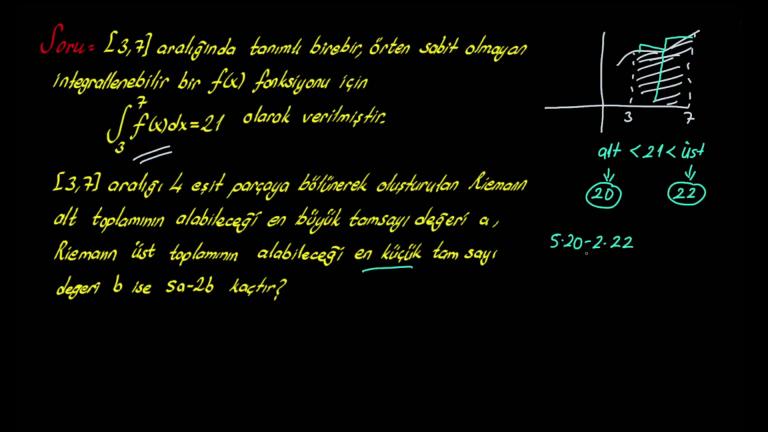 Soru = [3,7] aralığında tanımlı birebir, örten sabit olmayan
integrallenebilir bir f(x) fonksiyonu için
∫₃⁷ f(x)dx = 21 olarak verilmiştir.
[3,7] aralığı 4 eşit parçaya bölünerek oluşturulan Riemann
alt toplamının alabileceği en büyük tamsayı değeri a,
Riemann üst toplamının alabileceği en küçük tam sayı
değeri b ise 5a-2b kaçtır?
3 7
alt < 21 < üst
20 22
5·20-2·22